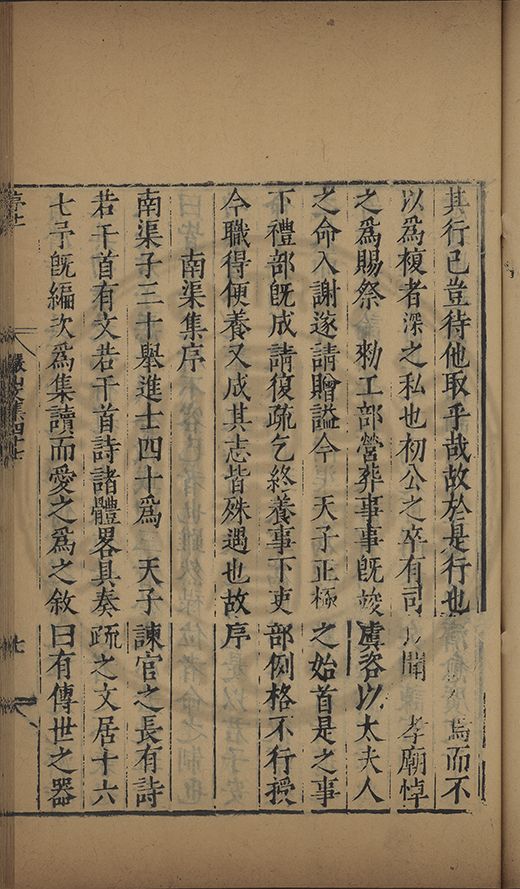 其行已豈待他取乎哉故於是行也為而不
以為稷者深之私也初公之卒有司以聞 孝廟悼
之為賜祭 勑工部營葬事事旣竣虞咨以太夫人
之命入謝遂請贈謚今 天子正極之始首是之事
下禮部旣成請復疏乞終養事下吏部例格不行授
今職得便養又成其志皆殊遇也故序
南渠集序
南渠子三十舉進士四十為 天子諫官之長有詩
若干首有文若干首詩諸體畧具奏疏之文居十六
七予旣編次為集讀而愛之為之敘曰有傳世之器